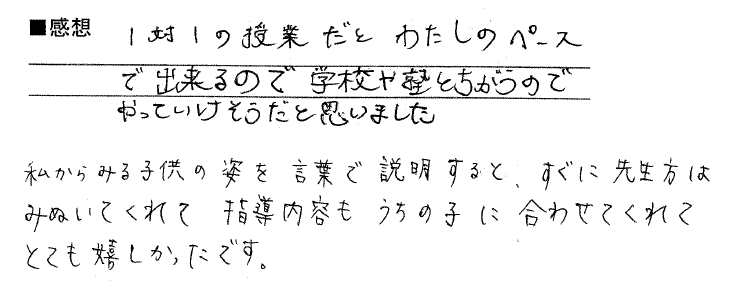 ■感想
1対1の授業だと わたしのペース
で出来るので 学校や塾とちがうので
やっていけそうだと思いました
私からみる子供の姿を言葉で説明すると、すぐに先生方は
みぬいてくれて 指導内容もうちの子に合わせてくれて
とても嬉しかったです。